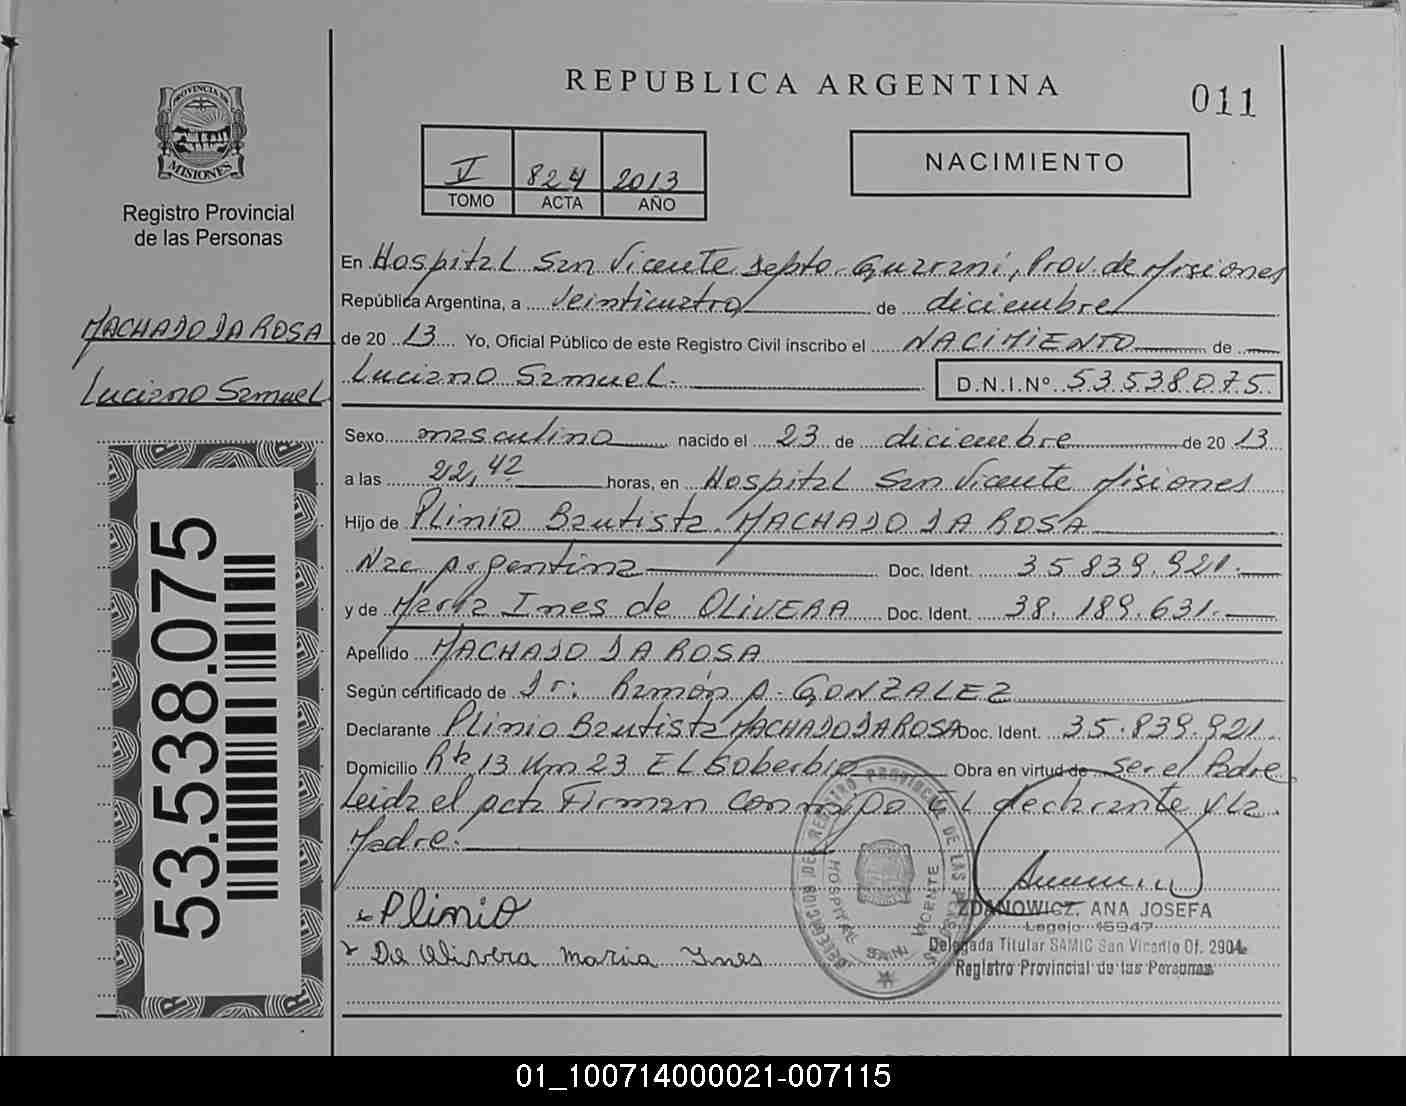 REPUBLICA ARGENTINA
011
PROVINCIA DE
MISIONES
Registro Provincial
de las Personas
V 824 2013
TOMO ACTA AÑO
NACIMIENTO
MACHADO DA ROSA
Luciano Samuel
53.538.075
En Hospital San Vicente Depto. Guarani, Prov. de Misiones
República Argentina, a veinticuatro de diciembre
de 20 13 Yo, Oficial Público de este Registro Civil inscribo el NACIMIENTO de
Luciano Samuel. D.N.I.Nº 53.538.075
Sexo masculino nacido el 23 de diciembre de 20 13
a las 22,42 horas, en Hospital San Vicente Misiones
Hijo de Plinio Bautista MACHADO DA ROSA
Nac Argentina Doc. Ident. 35.839.921.
y de Maria Ines de OLIVERA Doc. Ident. 38.189.631.
Apellido MACHADO DA ROSA
Según certificado de Dr: Ramón A. GONZALEZ
Declarante Plinio Bautista MACHADO DA ROSA Doc. Ident. 35.839.921.
Domicilio Rta 13 Km 23 El Soberbio Obra en virtud de ser el Padre
Leida el acta Firman conmigo el declarante y la
Madre.
Plinio
De Olivera Maria Ines
REGISTRO PROVINCIAL DE LAS PERSONAS
HOSPITAL SAN VICENTE
ZDANOWICZ, ANA JOSEFA
Legajo 15947
Delegada Titular SAMIC San Vicente Of. 2904
Registro Provincial de las Personas
01_100714000021-007115